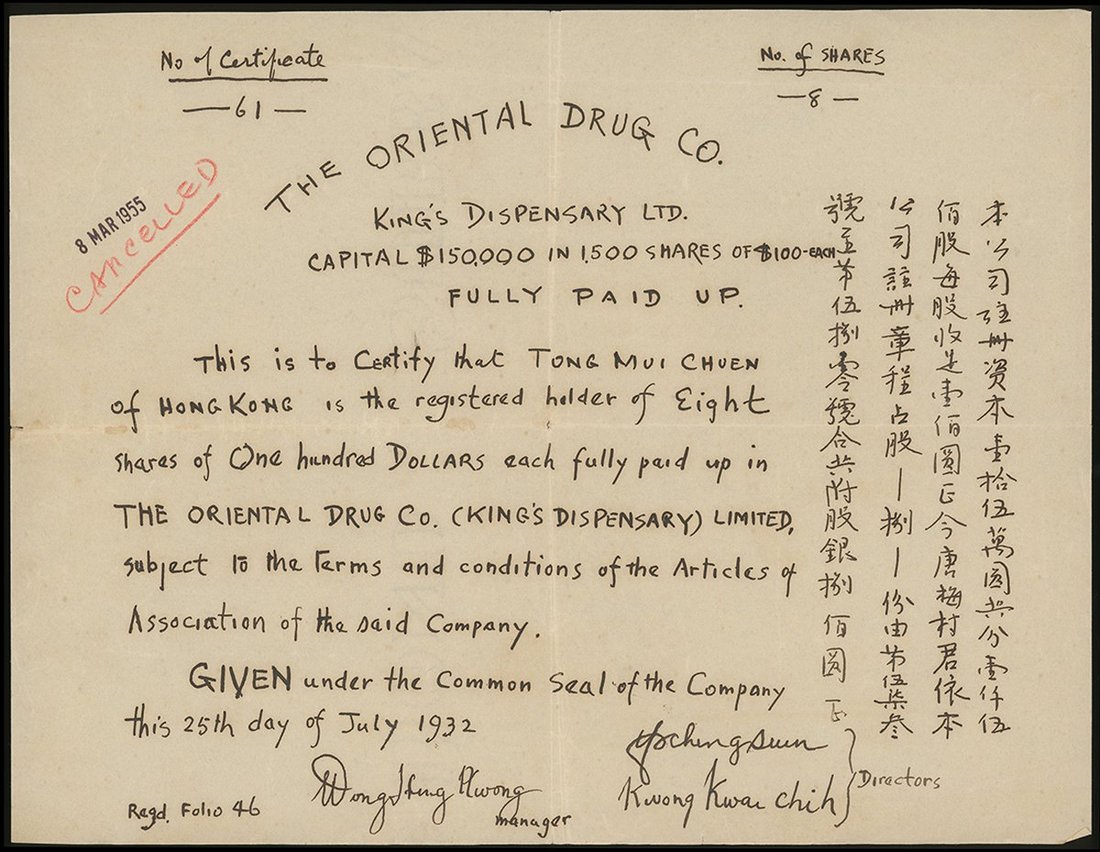 No of Certificate
— 61 —
No. of SHARES
— 8 —
THE ORIENTAL DRUG CO.
KING'S DISPENSARY LTD.
CAPITAL $150,000 IN 1,500 SHARES OF $100-EACH
FULLY PAID UP.
8 MAR 1955
CANCELLED
This is to Certify that TONG MUI CHUEN
of HONG KONG is the registered holder of Eight
shares of One hundred DOLLARS each fully paid up in
THE ORIENTAL DRUG Co. (KING'S DISPENSARY) LIMITED,
subject to the Terms and conditions of the Articles of
Association of the said Company.
GIVEN under the Common Seal of the Company
this 25th day of July 1932
Kwong Kwai Chih
Directors
manager
Regd. Folio 46
本公司註册资本壹拾伍萬圓共分壹仟伍
佰股每股收足壹佰圓正今唐梅村君依本
公司註册章程占股—捌—份由第伍柒叁
號至第伍捌零號合共附股銀捌佰圓正